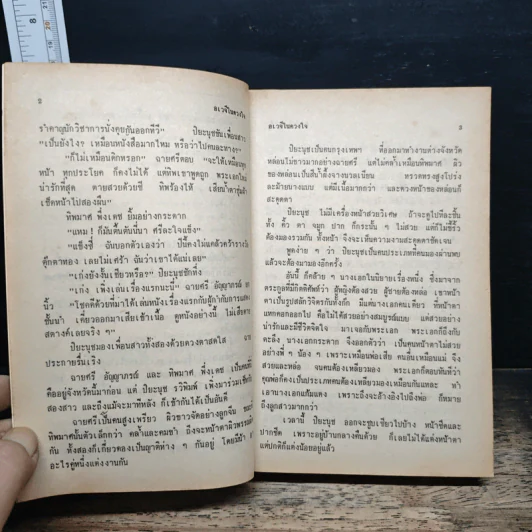 ๒
อเวจีในดวงใจ
รำคาญนักวิชาการนั่งคุยกันออกทีวี” ปิยะนุชชันเพื่อนสาว
“เป็นยังไงๆ เหมือนหนังสือมากไหม หรือว่าไปคนละทาง”
“ก็ไม่เหมือนดิกหรอก” ฉายศรีตอบ “จะให้เหมือนทุก
หน้า ทุกประโยค ก็คงไม่ได้ แต่ทิพเขาพูดถูก พระเอกใหม่
น่ารักที่สุด ตายสวยด้วยซี ทิพร้องไห้ เสียน้ำตาชุ่มผ้า
เช็ดหน้าไปสองผืน”
ทิพมาศ พึ่งเดช ยิ้มอย่างกระดาก
“แหม! ก็มันตื้นตันนี่นา ศรีละใจแข็ง”
“แข็งซี่ ฉันบอกตัวเองว่า ปีนี้คงไม่แคล้วคว้ารางวัล
ตุ๊กตาทอง เลยไม่เศร้า ฉันว่าเขาได้แน่เลย”
“เก่งยังงั้นเชียวหรือ?” ปิยะนุชซักทึ่ง
“เก่ง เพิ่งเล่นเรื่องแรกนะนี่” ฉายศรี อัญญาภรณ์
“โชคดีด้วยที่มาได้เล่นหนังเรื่องแรกกับผู้กำกับการแสดง
ชั้นนำ เคี่ยวออกมาเสียเข้าเนื้อ ดูหนังอย่างนี้ ไม่เสียดาย
สตางค์เลยจริง ๆ”
ปิยะนุชมองเพื่อนสาวทั้งสองด้วยดวงตาสดใส
ประกายชื่นเริง
ฉายศรี อัญญาภรณ์ และ ทิพมาศ พึ่งเดช เป็นคน
คืออยู่จังหวัดนี้มาก่อน แต่ ปิยะนุช รวิพิมพ์ เพิ่งมาร่วม
สองสาว และถึงแม้จะมาทีหลัง ก็เข้ากันได้เป็นอันดี
ฉายศรีเป็นคนสูงเพรียว ผิวขาวจัดอย่างลูกจีน
ทิพมาศนั้นตัวเล็กกว่า คล้ำและคมขำ ถึงจะหน้าตาผิวพรรณ
กัน ทั้งสองก็เกี่ยวดองเป็นญาติห่าง ๆ กันอยู่ โดยมีป้า
อะไรคู่หนึ่งแต่งงานกัน
อเวจีในดวงใจ
๓
ปิยะนุชเป็นคนกรุงเทพฯ ที่ออกมาทำงานต่างจังหวัด
หล่อนไม่ขาวมากอย่างฉายศรี แต่ไม่คล้ำเหมือนทิพมาศ ผิว
ของหล่อนเป็นสีน้ำผึ้งจางนวลเนียน ทรวดทรงสูงโปร่ง
ละม้ายนางแบบ แต่มีเนื้อมากกว่า และดวงหน้าของหล่อนก็
สะดุดตา
ปิยะนุช ไม่มีเครื่องหน้าสวยวิเศษ ถ้าจะดูไปทีละชิ้น
ทั้ง คิ้ว ตา จมูก ปาก ก็งั้น ๆ ไม่สวย แต่ก็ไม่ขี้ริ้ว
ต้องมองรวมกัน ทั้งหน้า จึงจะเห็นความงามสะดุดตาชัดเจน
พูดง่าย ๆ ว่า ปิยะนุชเป็นคนประเภทที่คนมองผ่านพบ
แล้วจะต้องมามองอีกครั้ง
อันนี้ ก็คล้าย ๆ นางเอกในนิยายเรื่องหนึ่ง ซึ่งมาจาก
ตระกูลที่มีกิตติศัพท์ว่า ผู้หญิงต้องสวย ผู้ชายต้องหล่อ เขาหน้าตา
ตาเป็นรูปสลักวิจิตรกันทั้งก๊ก มีแต่นางเอกคนเดียว ที่หน้าตา
นอกคอกออกมา คือไม่ได้สวยอย่างสมบูรณ์แบบ แต่สวยอย่าง
น่ารักและมีชีวิตจิตใจ มาเจอกับพระเอก พระเอกก็ยังกับ
ตะลึง นางเอกกระดาก จึงออกตัวว่า เป็นคนหน้าตาไม่สวย
อย่างพี่ ๆ น้อง ๆ เพราะเหมือนพ่อเสีย คนอื่นเหมือนแม่ จึง
สวยและหล่อ จนคนต้องเหลียวมอง พระเอกก็ตอบทันทีว่า
คุณพ่อก็คงเป็นประเภทคนต้องเหลียวมองเหมือนกันแหละ ทำ
เอานางเอกแก้มแดง เพราะถึงจะอ้างอิงไปถึงพ่อ ก็หมาย
ถึงลูกสาวมากกว่า
เวลานี้ ปิยะนุช ออกจะซูบเซียวไปบ้าง หน้าซีดและ
ปากซีด เพราะอยู่บ้านกลางคืนด้วย ก็เลยไม่ได้แต่งหน้าตา
แต่ปกติก็แต่งน้อยอยู่แล้ว
8